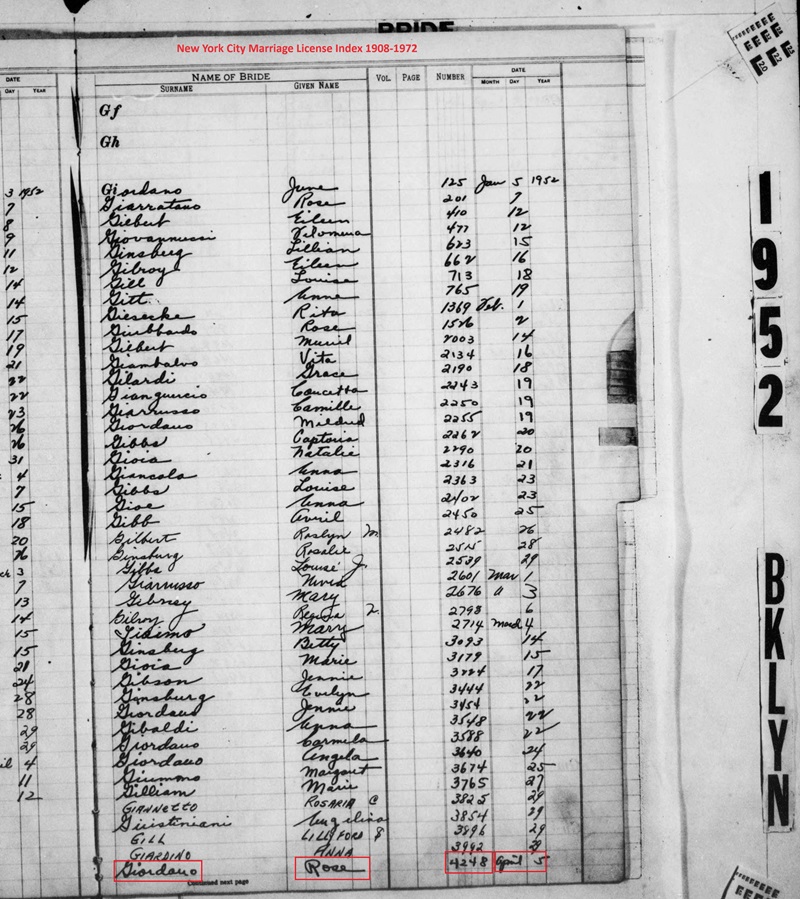 BRIDE
New York City Marriage License Index 1908-1972
DATE
DAY YEAR
3 1952
7
8
9
11
12
14
14
15
17
19
21
22
22
23
26
26
31
4
7
15
18
20
26
3
7
13
14
15
15
21
24
28
28
29
29
4
11
12
NAME OF BRIDE VOL. PAGE NUMBER DATE
SURNAME GIVEN NAME MONTH DAY YEAR
Gf
Gh
Giordano June 125 Jan 5 1952
Giarratano Rose 201 7
Gilbert Eileen 410 12
Giovannucci Filomena 477 12
Ginsberg Lillian 623 15
Gilroy Eileen 662 16
Gill Louise 713 18
Gitt Anne 765 19
Giesecke Rita 1369 Feb. 1
Giubbardo Rose 1526 2
Gilbert Muriel 2003 14
Giambalvo Vita 2134 16
Gilardi Grace 2190 18
Concetta 2243 19
Giarrusso Camille 2250 19
Giordano Mildred 2255 19
Gibbs 2262 20
Gioia Natalie 2290 20
Giancola Anna 2316 21
Gibbs Louise 2363 23
Gioe Anna 2402 23
Gibb Avril 2450 25
Gilbert Roslyn M. 2482 26
Ginsburg Rosalie 2515 28
Gibbs Louise J. 2539 29
Giarrusso 2601 Mar 1
Gibney Mary 2676 " 3
Gilroy Regina 2798 6
Mary 2714 March 4
Ginsberg Betty 3093 14
Gioia Marie 3179 15
Gibson Jennie 3224 17
Ginsburg Evelyn 3444 22
Giordano Jennie 3454 22
Gibaldi Anna 3548 22
Giordano Carmela 3588 22
Giordano Angela 3640 24
Giummo Margaret 3674 25
Gilliam Marie 3765 27
GIANNETTO ROSARIA C 3825 29
Giustiniani Angelina 3854 29
GILL LILLYFORD 3896 29
GIARDINO ANNA 3992 29
Giordano Rose 4248 April 5
Continued next page
1952
BKLYN